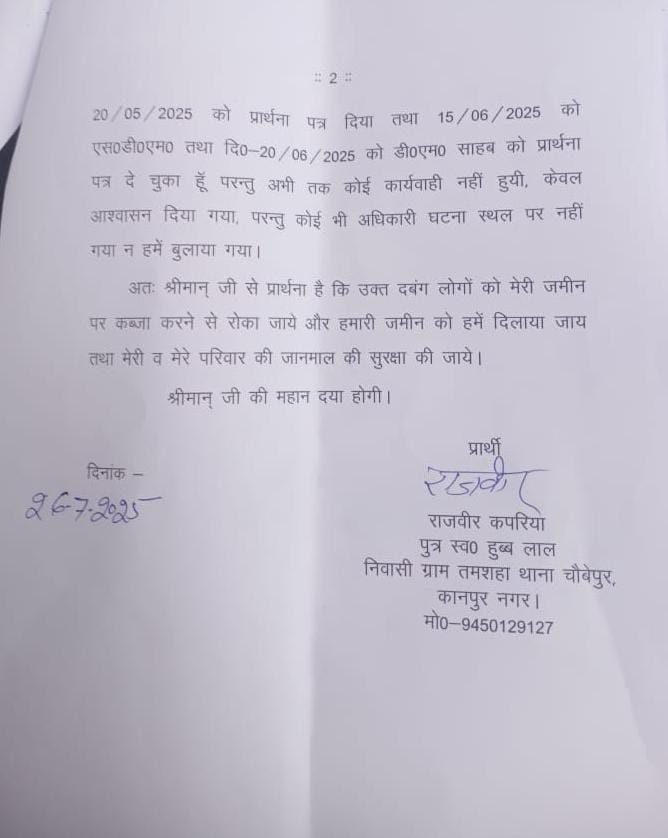 :: 2 ::
20/05/2025 को प्रार्थना पत्र दिया तथा 15/06/2025 को
एस0डी0एम0 तथा दि0–20/06/2025 को डी0एम0 साहब को प्रार्थना
पत्र दे चुका हूँ परन्तु अभी तक कोई कार्यवाही नहीं हुयी, केवल
आश्वासन दिया गया, परन्तु कोई भी अधिकारी घटना स्थल पर नहीं
गया न हमें बुलाया गया।
अतः श्रीमान् जी से प्रार्थना है कि उक्त दबंग लोगों को मेरी जमीन
पर कब्जा करने से रोका जाये और हमारी जमीन को हमें दिलाया जाय
तथा मेरी व मेरे परिवार की जानमाल की सुरक्षा की जाये।
श्रीमान् जी की महान दया होगी।
प्रार्थी
दिनांक –
26-7-2025
राजवीर
राजवीर कपरिया
पुत्र स्व0 हुब्ब लाल
निवासी ग्राम तमशहा थाना चौबेपुर,
कानपुर नगर।
मो0–9450129127